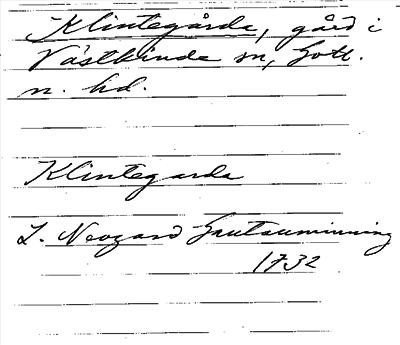 Klintegårde, gård i
Västkinde sn, Gotl.
n. hd.
Klintegarda
L. Neogard Gautauminning
1732